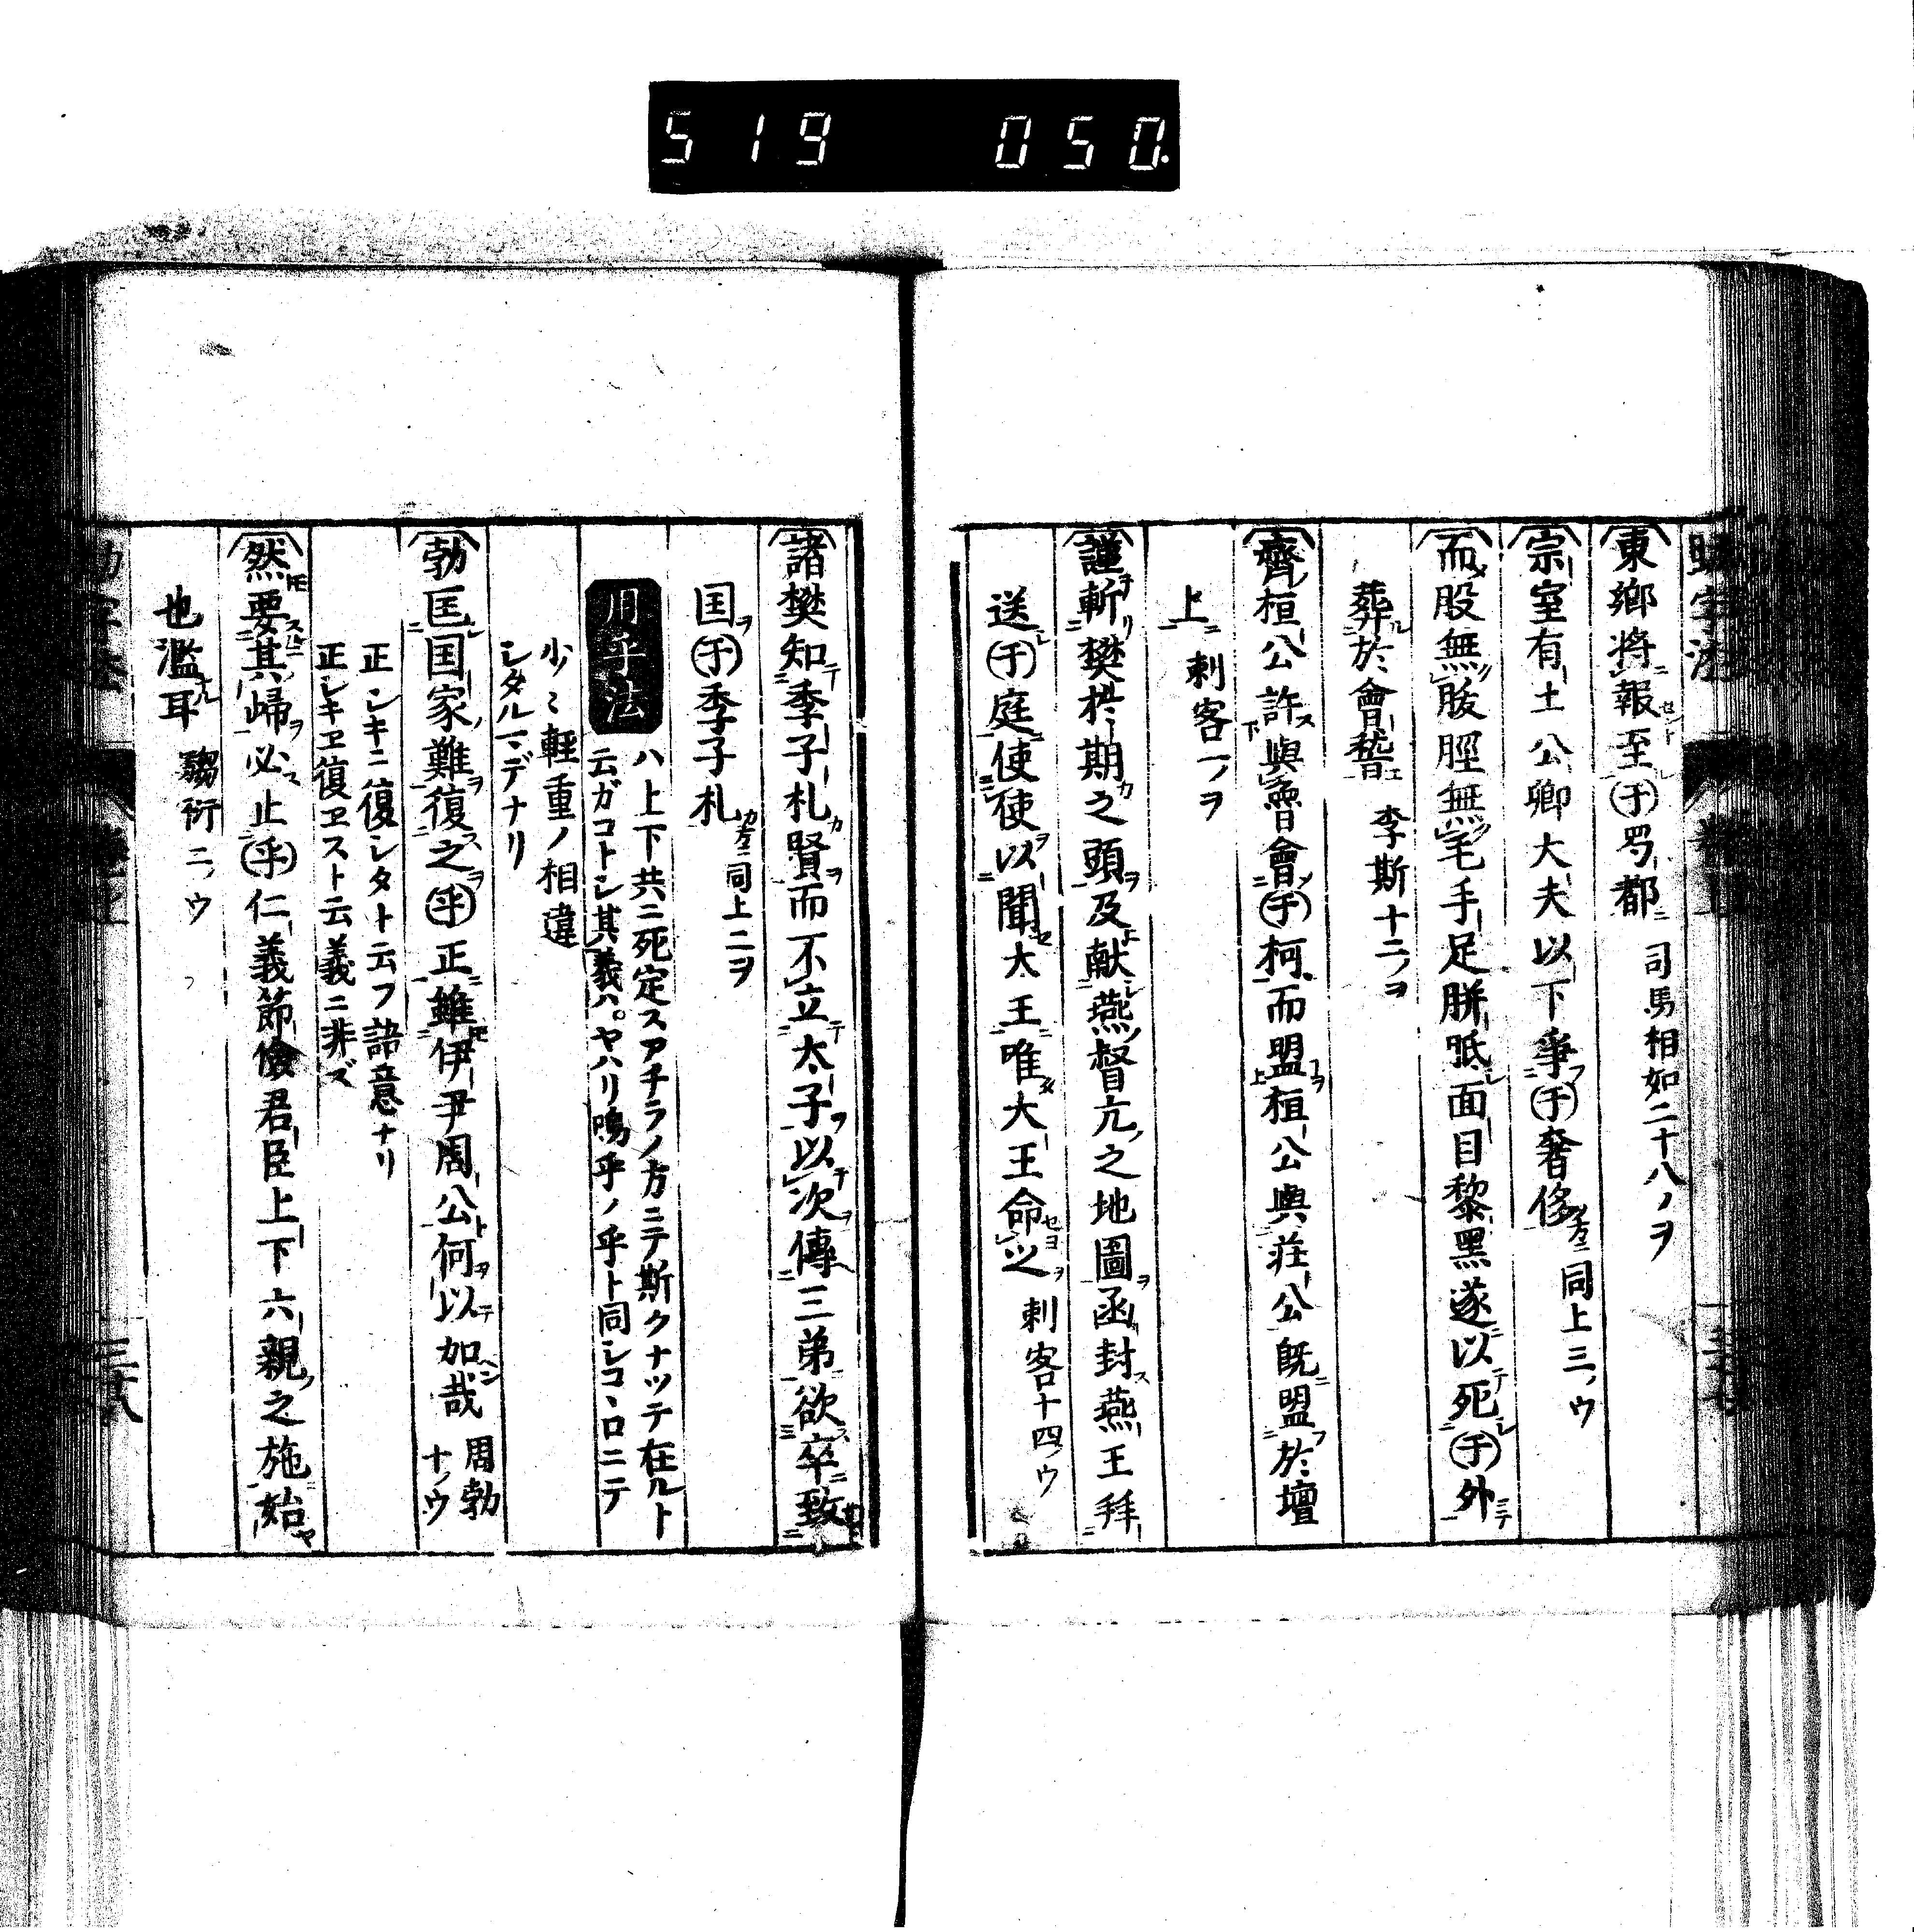 519 050.
東郷將報至于蜀都 司馬相如二十八ノヲ
宗室有土公卿大夫以下爭于奢侈 同上三ノウ
而股無胈脛無毛手足胼胝面目黎黑遂以死于外
葬於會稽 李斯十二ノヲ
齊桓公許與魯會于柯而盟桓公與莊公既盟於壇
上 刺客一ノヲ
謹斬樊於期之頭及献燕督亢之地圖函封燕王拜
送于庭使使以聞大王唯大王命之 刺客十四ノウ
諸樊知季子札賢而不立太子以次傳三弟欲卒致
国于季子札 同上二ヲ
用乎法 ハ上下共ニ死定スアチラノ方ニテ斯クナツテ在ルト
云ガコトシ其義ハ。ヤハリ嗚乎ノ乎ト同シコヽロニテ
少〻軽重ノ相違
シタルマデナリ
勃匡国家難復之乎正雖伊尹周公何以加哉 周勃
十ノウ
正シキニ復シタト云フ語意ナリ
正シキヱ復ヱスト云義ニ非ズ
然要其帰必止乎仁義節儉君臣上下六親之施始
也濫耳 騶衍二ノウ